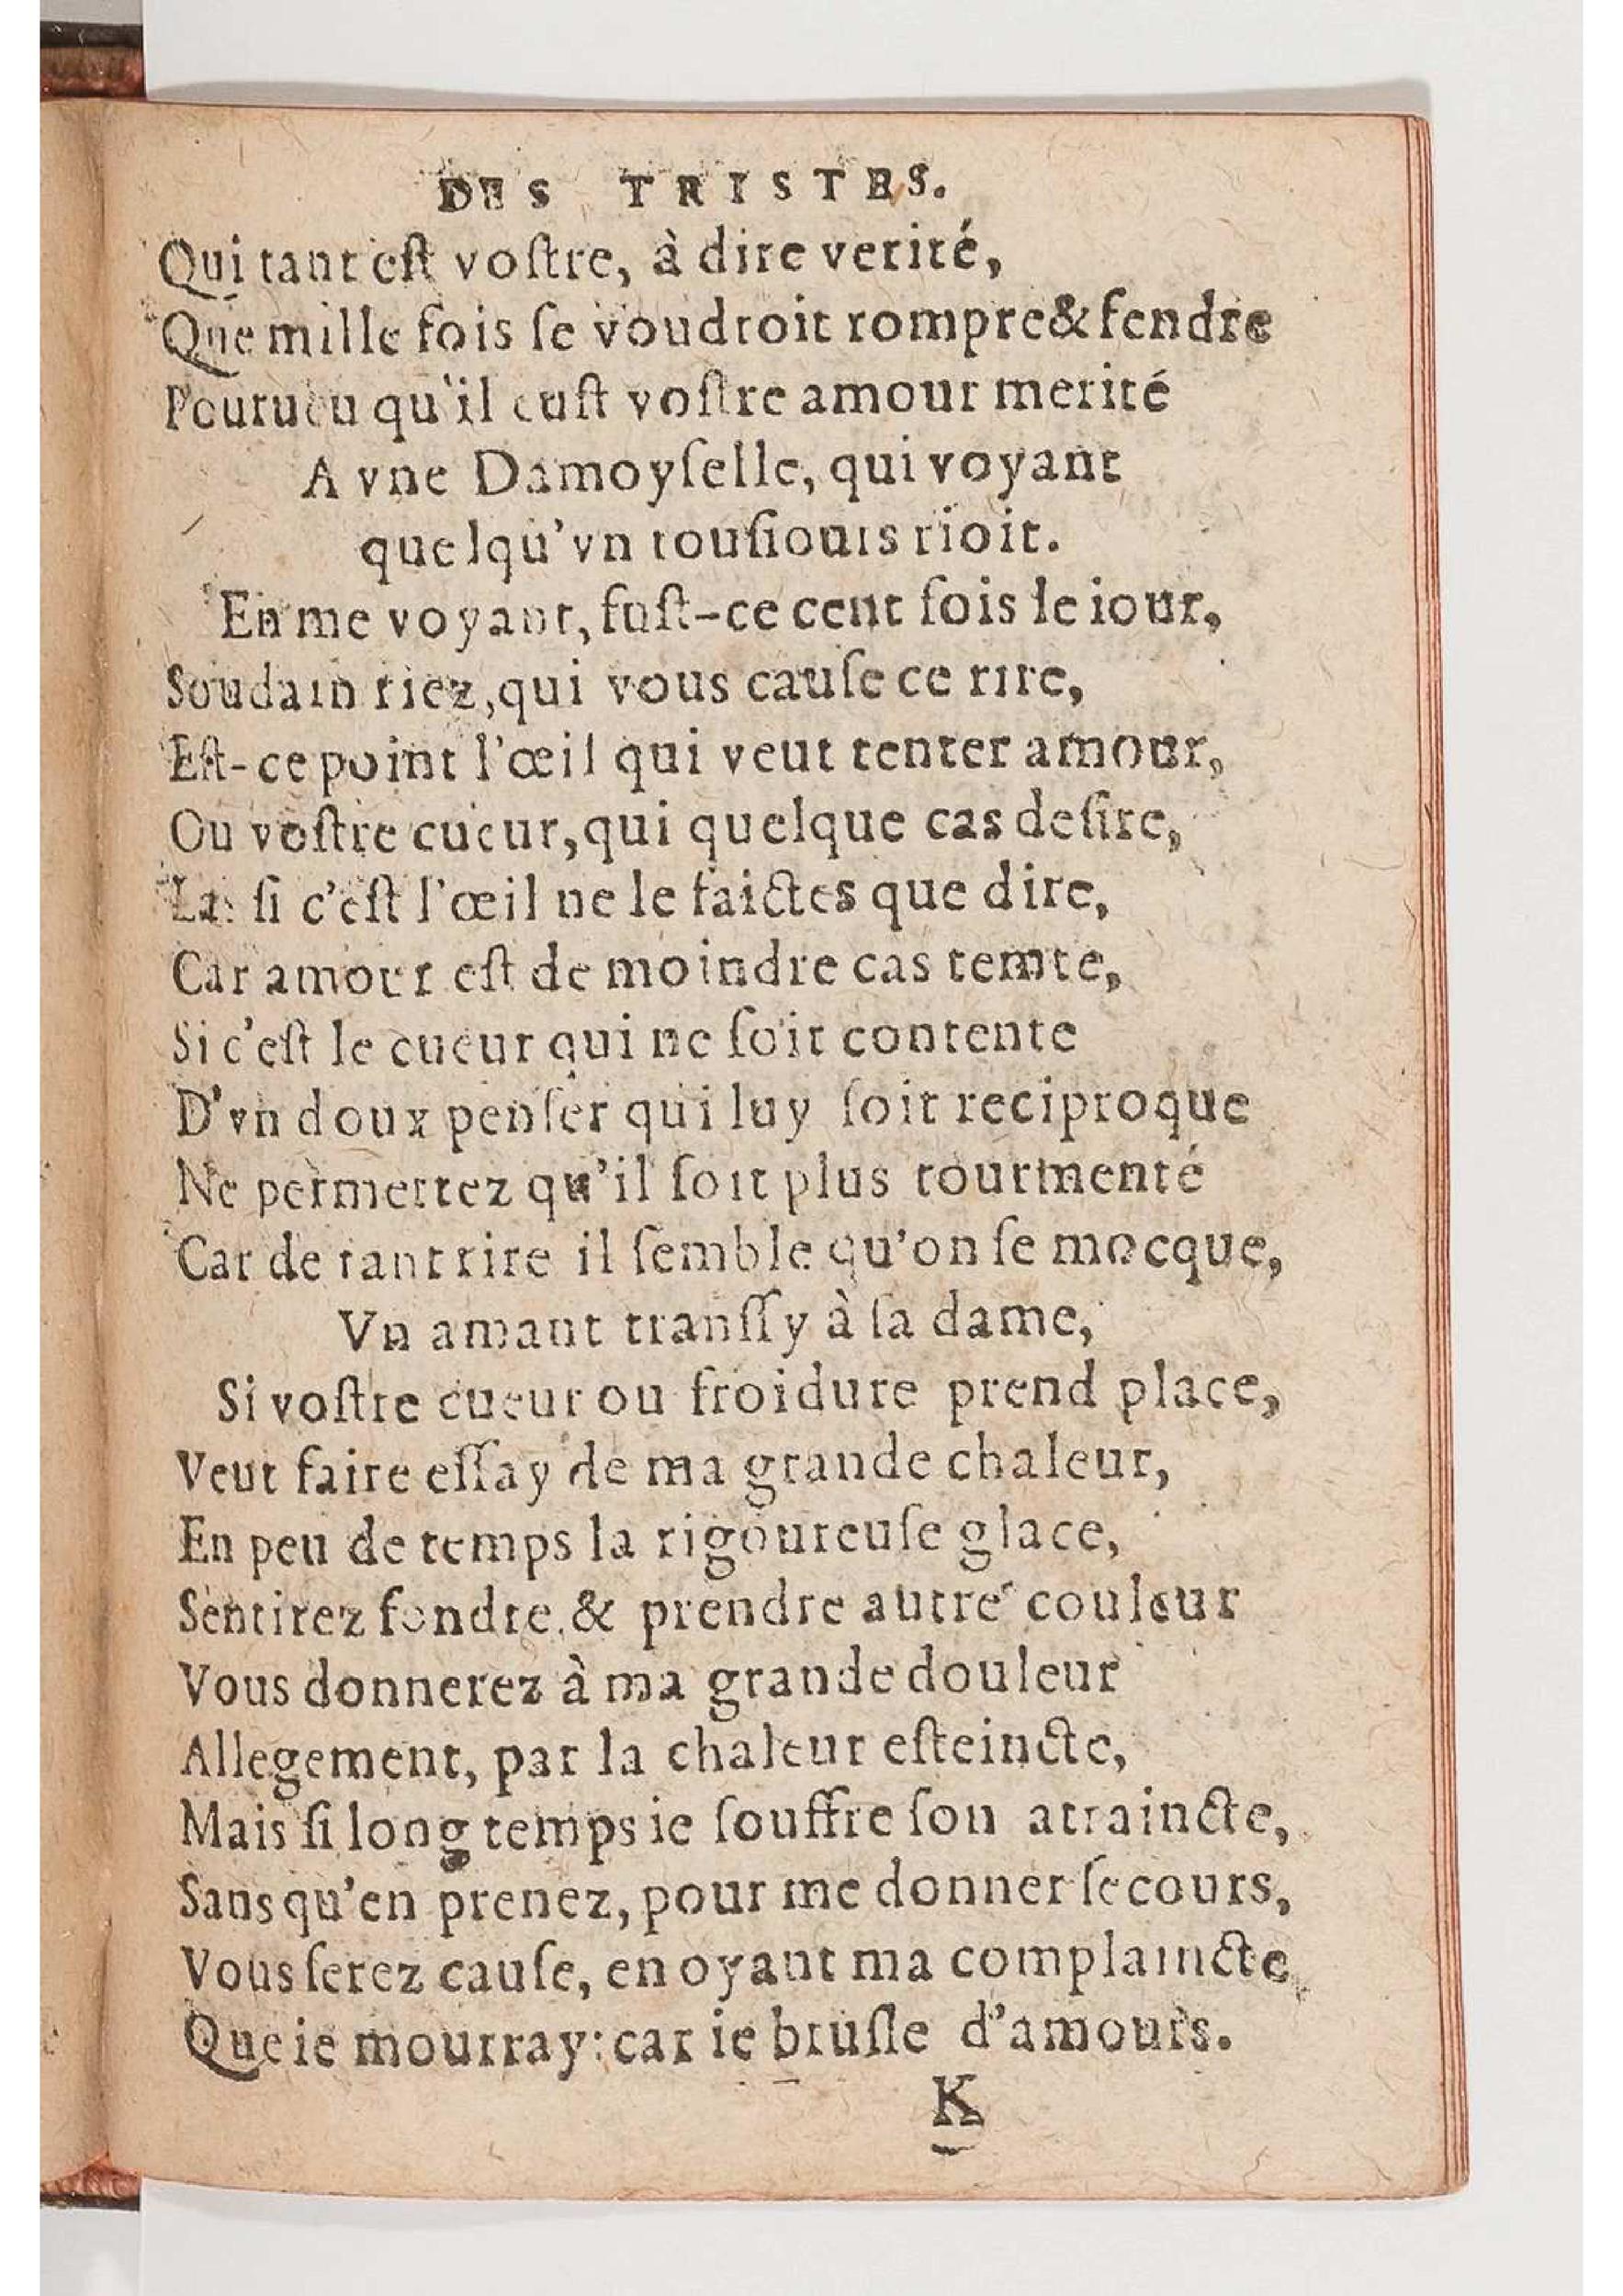 DES TRISTES.
Qui tant eſt voſtre, à dire verité,
Que mille fois ſe voudroit rompre & fendre
Pourueu qu'il euſt voſtre amour merité
A vne Damoyſelle, qui voyant
quelqu'vn touſiours rioit.
En me voyant, fuſt-ce cent fois le iour,
Soudain riez, qui vous cauſe ce rire,
Eſt-ce point l'œil qui veut tenter amour,
Ou voſtre cueur, qui quelque cas deſire,
Las ſi c'eſt l'œil ne le faictes que dire,
Car amour eſt de moindre cas temte,
Si c'eſt le cueur qui ne ſoit contente
D'vn doux penſer qui luy ſoit reciproque
Ne permettez qu'il ſoit plus tourmenté
Car de tant rire il ſemble qu'on ſe mocque,
Vn amant tranſſy à ſa dame,
Si voſtre cueur ou froidure prend place,
Veut faire eſſay de ma grande chaleur,
En peu de temps la rigoureuſe glace,
Sentirez fondre & prendre autre couleur
Vous donnerez à ma grande douleur
Allegement, par la chaleur eſteincte,
Mais ſi long temps ie ſouffre ſon attraincte,
Sans qu'en prenez, pour me donner ſecours,
Vous ſerez cauſe, en oyant ma complaincte
Que ie mourray: car ie bruſle d'amours.
K